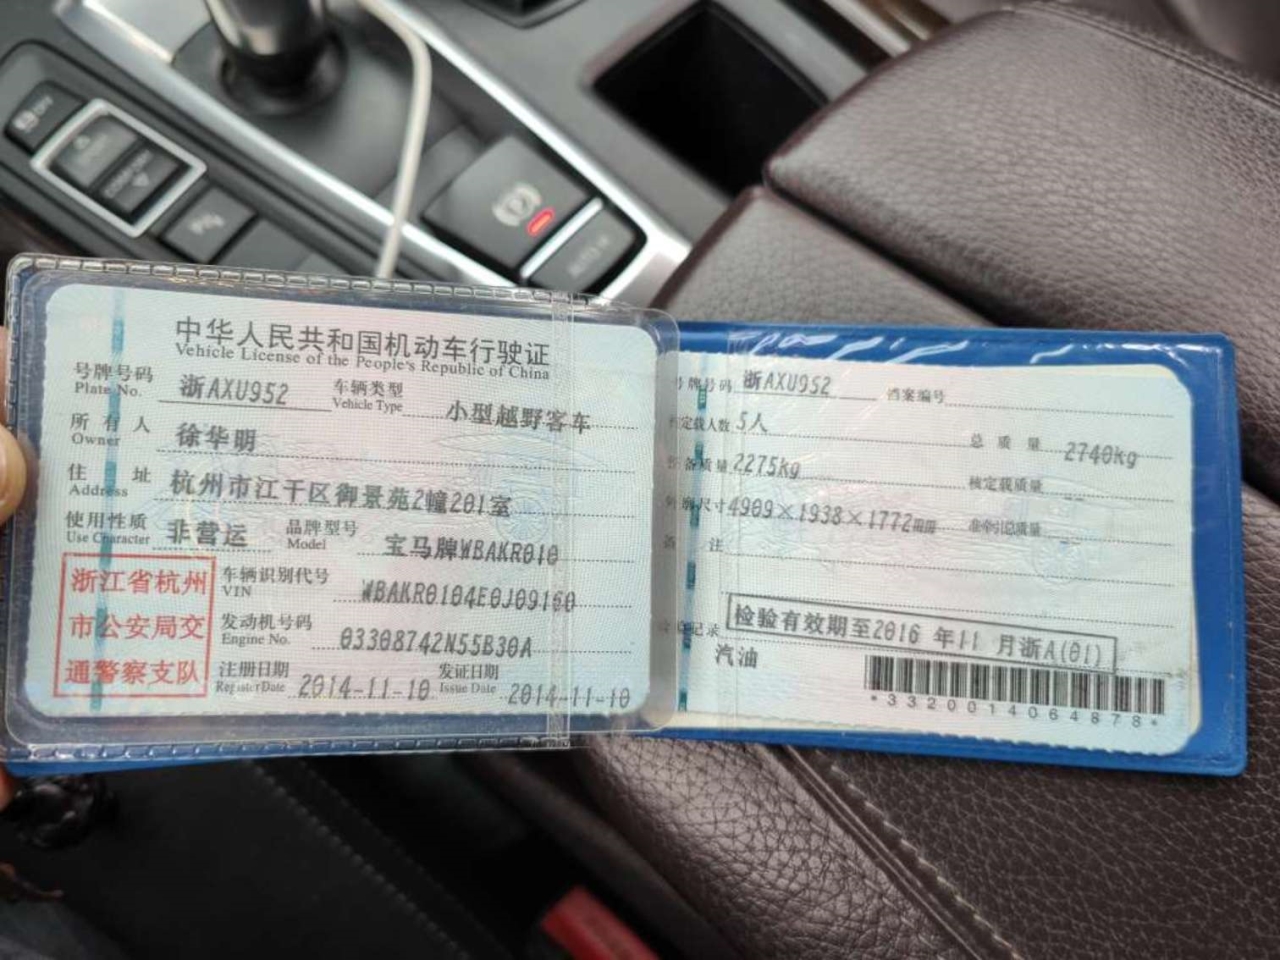 中华人民共和国机动车行驶证
Vehicle License of the People's Republic of China
号牌号码 浙AXU952 车辆类型 小型越野客车
Plate No. Vehicle Type
所有人 徐华明
Owner
住址 杭州市江干区御景苑2幢201室
Address
使用性质 非营运 品牌型号 宝马牌WBAKR010
Use Character Model
浙江省杭州
市公安局交
通警察支队
车辆识别代号 WBAKR0104E0J09160
VIN
发动机号码 03308742N55B30A
Engine No.
注册日期 2014-11-10 发证日期 2014-11-10
Register Date Issue Date
号牌号码 浙AXU952 档案编号
定载人数 5人 总质量 2740kg
备质量 2275kg 核定载质量 --
外廓尺寸 4909×1938×1772mm 准牵引总质量 --
备注
记录 检验有效期至2016年11月浙A(01)
汽油
*3320014064878*
AUTO H
COMFORT